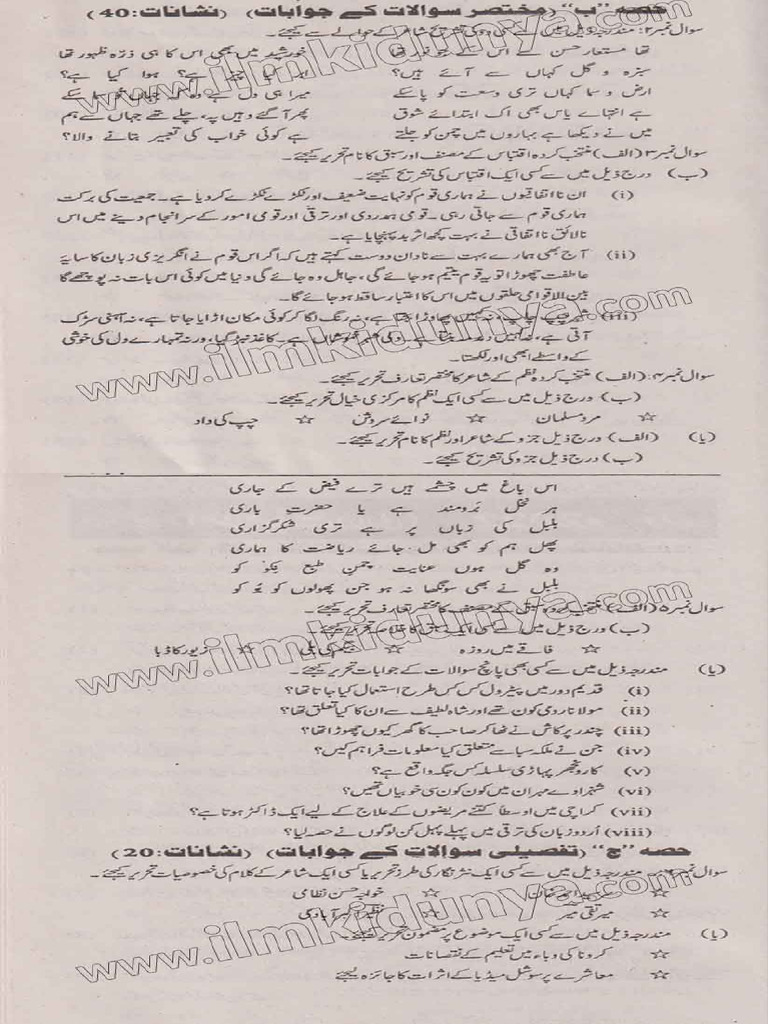 حصہ "ب" (مختصر سوالات کے جوابات) (نشانات: 40)
سوال نمبر ۲: مندرجہ ذیل میں سے کی تشریح شاعر کے حوالے سے کیجئے۔
تھا مستعار حسن سے اس کے جو نور تھا خورشید میں بھی اس کا ہی ذرّہ ظہور تھا
سبزہ و گل کہاں سے آئے ہیں؟ ابر کیا چیز ہے؟ ہوا کیا ہے؟
ارض و سما کہاں تری وسعت کو پا سکے میرا ہی دل ہے وہ کہ جہاں تو سما سکے
ہے انتہائے یاس بھی اک ابتدائے شوق پھر آگئے وہیں پہ، چلے تھے جہاں سے ہم
میں نے دیکھا ہے بہاروں میں چمن کو جلتے ہے کوئی خواب کی تعبیر بتانے والا؟
سوال نمبر ۳ (الف) منتخب کردہ اقتباس کے مصنف اور سبق کا نام تحریر کیجئے۔
(ب) درج ذیل میں سے کسی ایک اقتباس کی تشریح کیجئے۔
(i) ان نا اتفاقیوں نے ہماری قوم کو نہایت ضعیف اور ٹکڑے ٹکڑے کردیا ہے۔ جمعیت کی برکت
ہماری قوم سے جاتی رہی۔ قومی ہمدردی اور ترقی اور قومی امور کے سرانجام دینے میں اس
نالائق نا اتفاقی نے بہت کچھ اثر بد پہنچایا ہے۔
(ii) آج بھی ہمارے بہت سے نادان دوست کہتے ہیں کہ اگر اس قوم نے انگریزی زبان کا سایہ
عاطفت چھوڑا تو یہ قوم یتیم ہوجائے گی، جاہل رہ جائے گی دنیا میں کوئی اس بات نہ پوچھے گا
بین الاقوامی حلقوں میں اس کا اعتبار ساقط ہوجائے گا۔
(iii) شہر چپ چاپ، نہ کہیں پھاوڑا بجتا ہے، نہ سرنگ لگا کر کوئی مکان اڑایا جاتا ہے، نہ آہنی سڑک
آتی ہے، نہ کہیں دمدمہ بنتا ہے۔ دلی شہر خموشاں ہے۔ کاغذ نبڑ گیا، ورنہ تمہارے دل کی خوشی
کے واسطے ابھی اور لکھتا۔
سوال نمبر ۴: (الف) منتخب کردہ نظم کے شاعر کا مختصر تعارف تحریر کیجئے۔
(ب) درج ذیل میں سے کسی ایک نظم کا مرکزی خیال تحریر کیجئے۔
☆ مرد مسلمان ☆ نوائے سروش ☆ چپ کی داد
(یا) (الف) درج ذیل جزو کے شاعر اور نظم کا نام تحریر کیجئے۔
(ب) درج ذیل جزو کی تشریح کیجئے۔
اس باغ میں چشمے ہیں ترے فیض کے جاری
ہر نخل بَرومند ہے یا حضرتِ باری
بلبل کی زباں پر ہے تری شکر گزاری
پھل ہم کو بھی مل جائے ریاضت کا ہماری
وہ گل ہوں عنایت چمنِ طبعِ نِکو کو
بلبل نے بھی سونگھا نہ ہو جن پھولوں کو بُو کو
سوال نمبر ۵ (الف) منتخب کردہ سبق کے مصنف کا مختصر تعارف تحریر کیجئے۔
(ب) درج ذیل میں سے کسی ایک سبق کا خلاصہ تحریر کیجئے۔
☆ فاقے میں روزہ ☆ ☆ زیور کا ڈبا
(یا) مندرجہ ذیل میں سے کسی بھی پانچ سوالات کے جوابات تحریر کیجئے۔
(i) قدیم دور میں پیٹرول کس کس طرح استعمال کیا جاتا تھا؟
(ii) مولانا رومی کون تھے اور شاہ لطیف سے ان کا کیا تعلق تھا؟
(iii) چندر پرکاش نے ٹھاکر صاحب کا گھر کیوں چھوڑا تھا؟
(iv) جن نے ملکہ سبا سے متعلق کیا معلومات فراہم کیں؟
(v) کارونجھر پہاڑی سلسلہ کس جگہ واقع ہے؟
(vi) شہزادے مہران میں کون کون سی خوبیاں تھیں؟
(vii) کراچی میں اوسطاً کتنے مریضوں کے علاج کے لیے ایک ڈاکٹر ہوتا ہے؟
(viii) اُردو زبان کی ترقی میں پہلے پہل کن لوگوں نے حصہ لیا؟
حصہ "ج" (تفصیلی سوالات کے جوابات) (نشانات: 20)
سوال نمبر ۶: مندرجہ ذیل میں سے کسی ایک نثر نگار کی طرز تحریر یا کسی ایک شاعر کے کلام کی خصوصیات تحریر کیجئے۔
☆ سرسید احمد خان ☆ خواجہ حسن نظامی
☆ میر تقی میر ☆ نظیر اکبر آبادی
(یا) مندرجہ ذیل میں سے کسی ایک موضوع پر مضمون تحریر کیجئے۔
☆ کرونا کی وباء میں تعلیم کے نقصانات
☆ معاشرے پر سوشل میڈیا کے اثرات کا جائزہ لیجئے
www.ilmkidunya.com
www.ilmkidunya.com
www.ilmkidunya.com
www.ilmkidunya.com